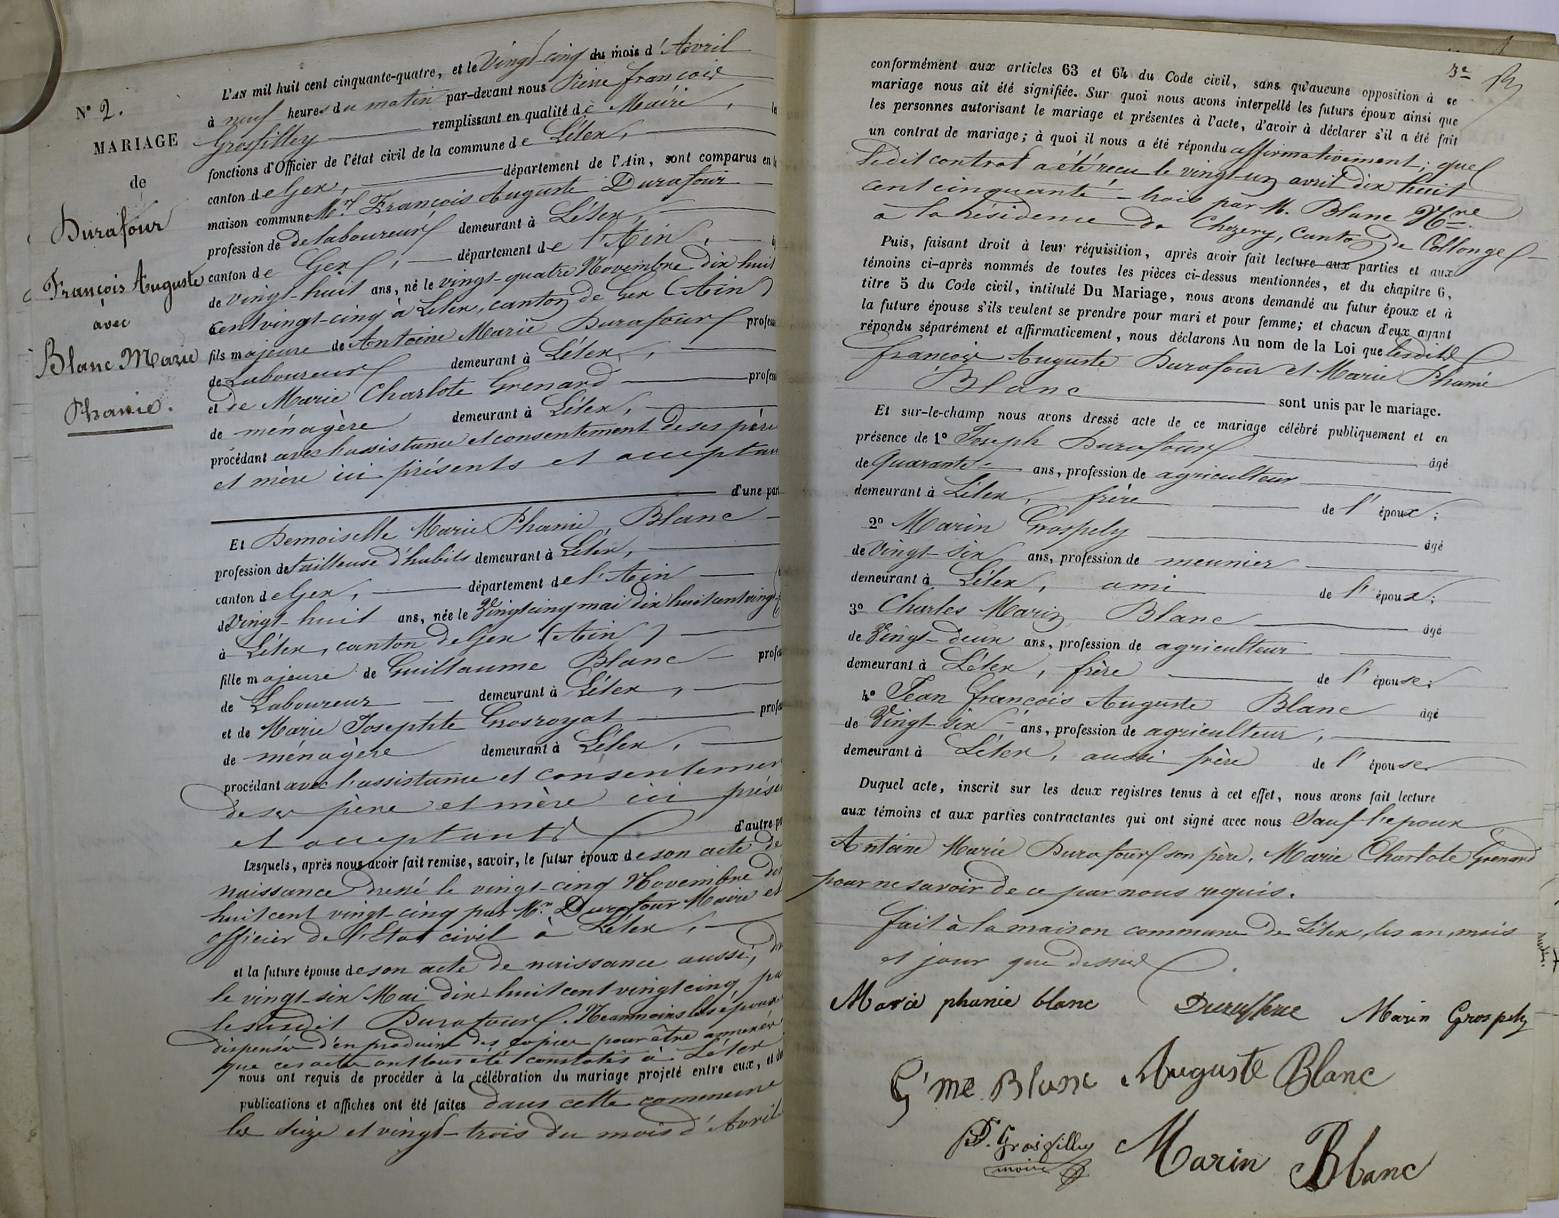 N° 2.
MARIAGE
de
Durafour
François Auguste
avec
Blanc Marie
Phanie.
L'AN mil huit cent cinquante-quatre, et le Vingt-cinq du mois d'Avril
à neuf heures du matin par-devant nous Rene françois
Grosfilley remplissant en qualité de Maire, le
fonctions d'Officier de l'état civil de la commune de Lélex,
canton de Gex, département de l'Ain, sont comparus en la
maison commune Mr. François Auguste Durafour
profession de de laboureur demeurant à Lélex,
canton de Gex, département de l'Ain,
de vingt-huit ans, né le vingt quatre Novembre dix huit
cent vingt-cinq à Lélex, canton de Gex (Ain)
fils majeure de Antoine Marie Durafour profess
de Laboureur demeurant à Lélex,
et de Marie Charlote Grenard profess
de ménagère demeurant à Lélex,
procédant avec l'assistance et consentement de ses père
et mère ici présents et acceptan
d'une par
Et Demoiselle Marie Phanie Blanc
profession de tailleuse d'habits demeurant à Lélex,
canton de Gex, département de l'Ain
de Vingt-huit ans, née le Vingt cinq mai dix huit cent vingt
à Lélex, canton de Gex (Ain)
fille majeure de Guillaume Blanc profes
de Laboureur demeurant à Lélex,
et de Marie Josephte Grosroyat profes
de ménagère demeurant à Lélex,
procédant avec l'assistance et consentemen
de ses père et mère ici prése
et acceptants d'autre pa
Lesquels, après nous avoir fait remise, savoir, le futur époux de son acte de
naissance dressé le vingt cinq Novembre dix
huit cent vingt-cinq par Mr. Durafour Maire et
officier de l'Etat civil à Lélex,
et la future épouse de son acte de naissance aussi,
le vingt six Mai dix-huit cent vingt cinq pa
le susdit Durafour. Néanmoins les époux
dispensés d'en produire des copies pour être annexés
que ces actes ont tous été constatés à Lélex
nous ont requis de procéder à la célébration du mariage projeté entre eux, et do
publications et affiches ont été faites dans cette commune
les seize et vingt-trois du mois d'Avril
3e
conformément aux articles 63 et 64 du Code civil, sans qu'aucune opposition à ce
mariage nous ait été signifiée. Sur quoi nous avons interpellé les futurs époux ainsi que
les personnes autorisant le mariage et présentes à l'acte, d'avoir à déclarer s'il a été fait
un contrat de mariage; à quoi il nous a été répondu affirmativement; que
ledit contrat a été reçu le vingt-un avril dix huit
cent cinquante-trois par M. Blanc Nre
à la résidence de Chezery, canton de Collonges
Puis, faisant droit à leur réquisition, après avoir fait lecture aux parties et aux
témoins ci-après nommés de toutes les pièces ci-dessus mentionnées, et du chapitre 6,
titre 5 du Code civil, intitulé Du Mariage, nous avons demandé au futur époux et à
la future épouse s'ils veulent se prendre pour mari et pour femme; et chacun d'eux ayant
répondu séparément et affirmativement, nous déclarons Au nom de la Loi que lesdits
françois Auguste Durafour et Marie Phanie
Blanc sont unis par le mariage.
Et sur-le-champ nous avons dressé acte de ce mariage célébré publiquement et en
présence de 1° Joseph Durafour âgé
de Quarante ans, profession de agriculteur
demeurant à Lélex, frère de l'époux;
2° Marin Grospely âgé
de Vingt-six ans, profession de meunier
demeurant à Lélex, ami de l'époux;
3° Charles Marin Blanc âgé
de Vingt-deux ans, profession de agriculteur
demeurant à Lélex, frère de l'épouse;
4° Jean françois Auguste Blanc âgé
de Vingt-six ans, profession de agriculteur,
demeurant à Lélex, aussi frère de l'épouse
Duquel acte, inscrit sur les deux registres tenus à cet effet, nous avons fait lecture
aux témoins et aux parties contractantes qui ont signé avec nous Sauf l'époux
Antoine Marie Durafour son père, Marie Charlote Grenard
pour ne savoir de ce par nous requis.
fait à la maison commune de Lélex, les an, mois
et jour que dessus.
Marie phanie blanc Durafour Marin Grospely
G'me Blanc Auguste Blanc
Grosfilley
maire
Marin Blanc